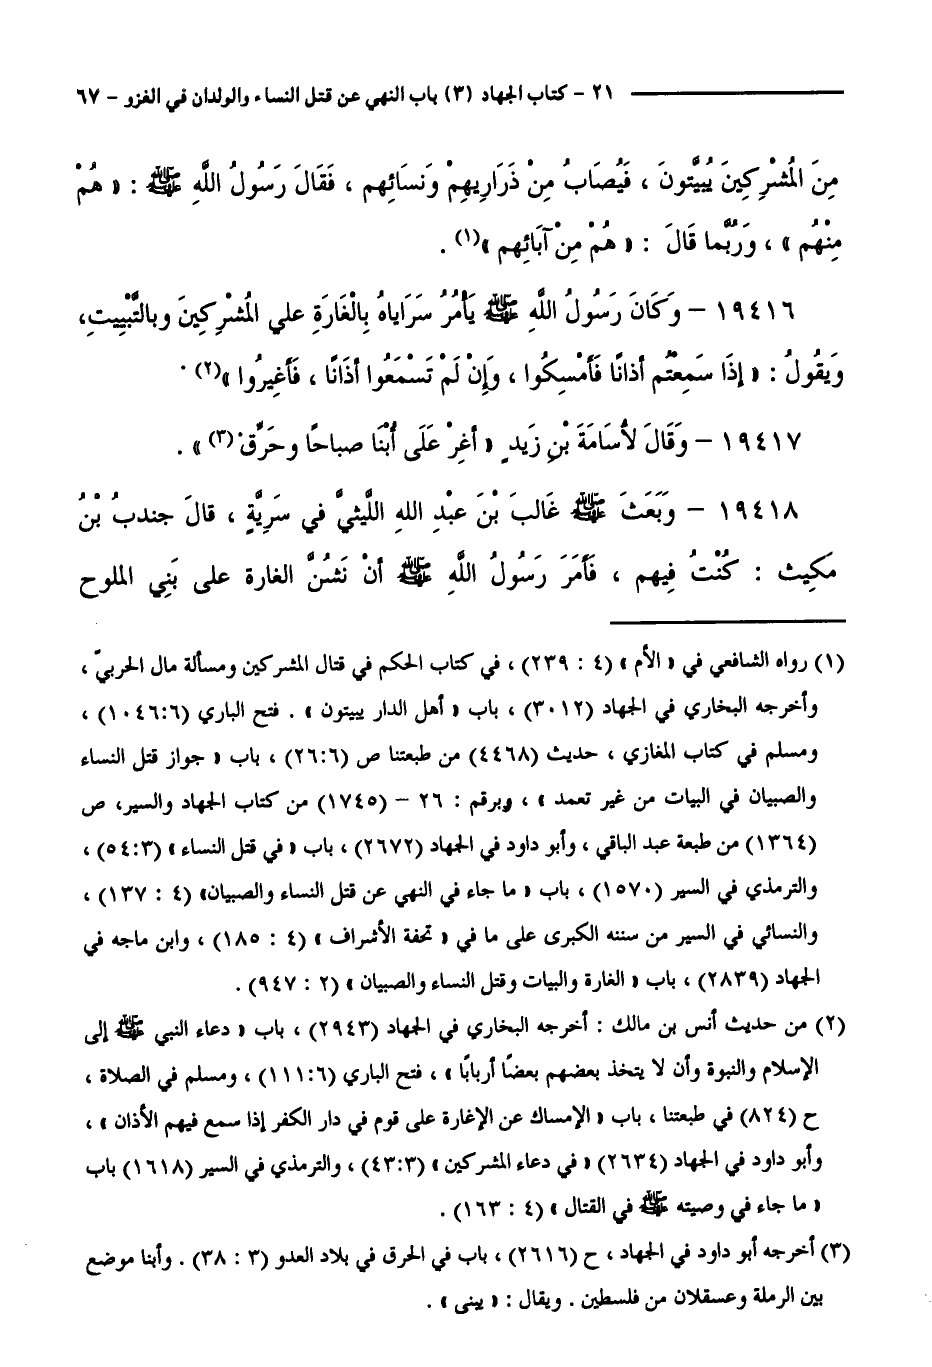 ٢١ - كتاب الجهاد (٣) باب النهي عن قتل النساء والولدان في الغزو - ٦٧
مِنَ الْمُشْرِكِينَ يُبَيَّتُونَ ، فَيُصَابُ مِنْ ذَرَارِيهِمْ وَنَسَائِهم ، فَقَالَ رَسُولُ اللَّهِ ﷺ : « هُمْ
مِنْهُم » ، وَرُبَّما قَالَ : « هُمْ مِنْ آبَائِهم »(١) .
١٩٤١٦ - وَكَانَ رَسُولُ اللَّهِ ﷺ يَأْمُرُ سَرَاياهُ بِالْغَارَةِ علي الْمُشْرِكِينَ وبالتَّبْيِيتِ،
وَيَقُولُ : « إذَا سَمِعْتُم أذانًا فَأَمْسِكُوا ، وَإِنْ لَمْ تَسْمَعُوا أذَانًا ، فَأَغِيرُوا »(٢) .
١٩٤١٧ - وَقَالَ لأُسَامَةَ بْنِ زَيدٍ « أغِرْ عَلَى أُبْنَا صباحًا وحَرِّقْ(٣) » .
١٩٤١٨ - وَبَعَثَ ﷺ غَالبَ بْنَ عبْدِ اللهِ اللَّيثيَّ في سَرِيَّةٍ ، قالَ جندبُ بْنُ
مَكِيث : كُنْتُ فِيهم ، فَأَمَرَ رَسُولُ اللَّهِ ﷺ أنْ نَشُنَّ الغارة على بَنِي الملوح
(١) رواه الشافعي في « الأم » (٤ : ٢٣٩) ، في كتاب الحكم في قتال المشركين ومسألة مال الحربيّ ،
وأخرجه البخاري في الجهاد (٣٠١٢) ، باب « أهل الدار يبيتون » . فتح الباري (١٠٤٦:٦) ،
ومسلم في كتاب المغازي ، حديث (٤٤٦٨) من طبعتنا ص (٢٦:٦) ، باب « جواز قتل النساء
والصبيان في البيات من غير تعمد » ، وبرقم : ٢٦ - (١٧٤٥) من كتاب الجهاد والسير، ص
(١٣٦٤) من طبعة عبد الباقي ، وأبو داود في الجهاد (٢٦٧٢) ، باب « في قتل النساء » (٥٤:٣) ،
والترمذي في السير (١٥٧٠) ، باب « ما جاء في النهي عن قتل النساء والصبيان» (٤ : ١٣٧) ،
والنسائي في السير من سننه الكبرى على ما في « تحفة الأشراف » (٤ : ١٨٥) ، وابن ماجه في
الجهاد (٢٨٣٩) ، باب « الغارة والبيات وقتل النساء والصبيان » (٢ : ٩٤٧) .
(٢) من حديث أنس بن مالك : أخرجه البخاري في الجهاد (٢٩٤٣) ، باب « دعاء النبي ﷺ إلى
الإسلام والنبوة وأن لا يتخذ بعضهم بعضًا أربابًا » ، فتح الباري (١١١:٦) ، ومسلم في الصلاة ،
ح (٨٢٤) في طبعتنا ، باب « الإمساك عن الإغارة على قوم في دار الكفر إذا سمع فيهم الأذان » ،
وأبو داود في الجهاد (٢٦٣٤) « في دعاء المشركين » (٤٣:٣) ، والترمذي في السير (١٦١٨) باب
« ما جاء في وصيته ﷺ في القتال » (٤ : ١٦٣) .
(٣) أخرجه أبو داود في الجهاد ، ح (٢٦١٦) ، باب في الحرق في بلاد العدو (٣ : ٣٨) . وأبنا موضع
بين الرملة وعسقلان من فلسطين . ويقال : « يبنى » .